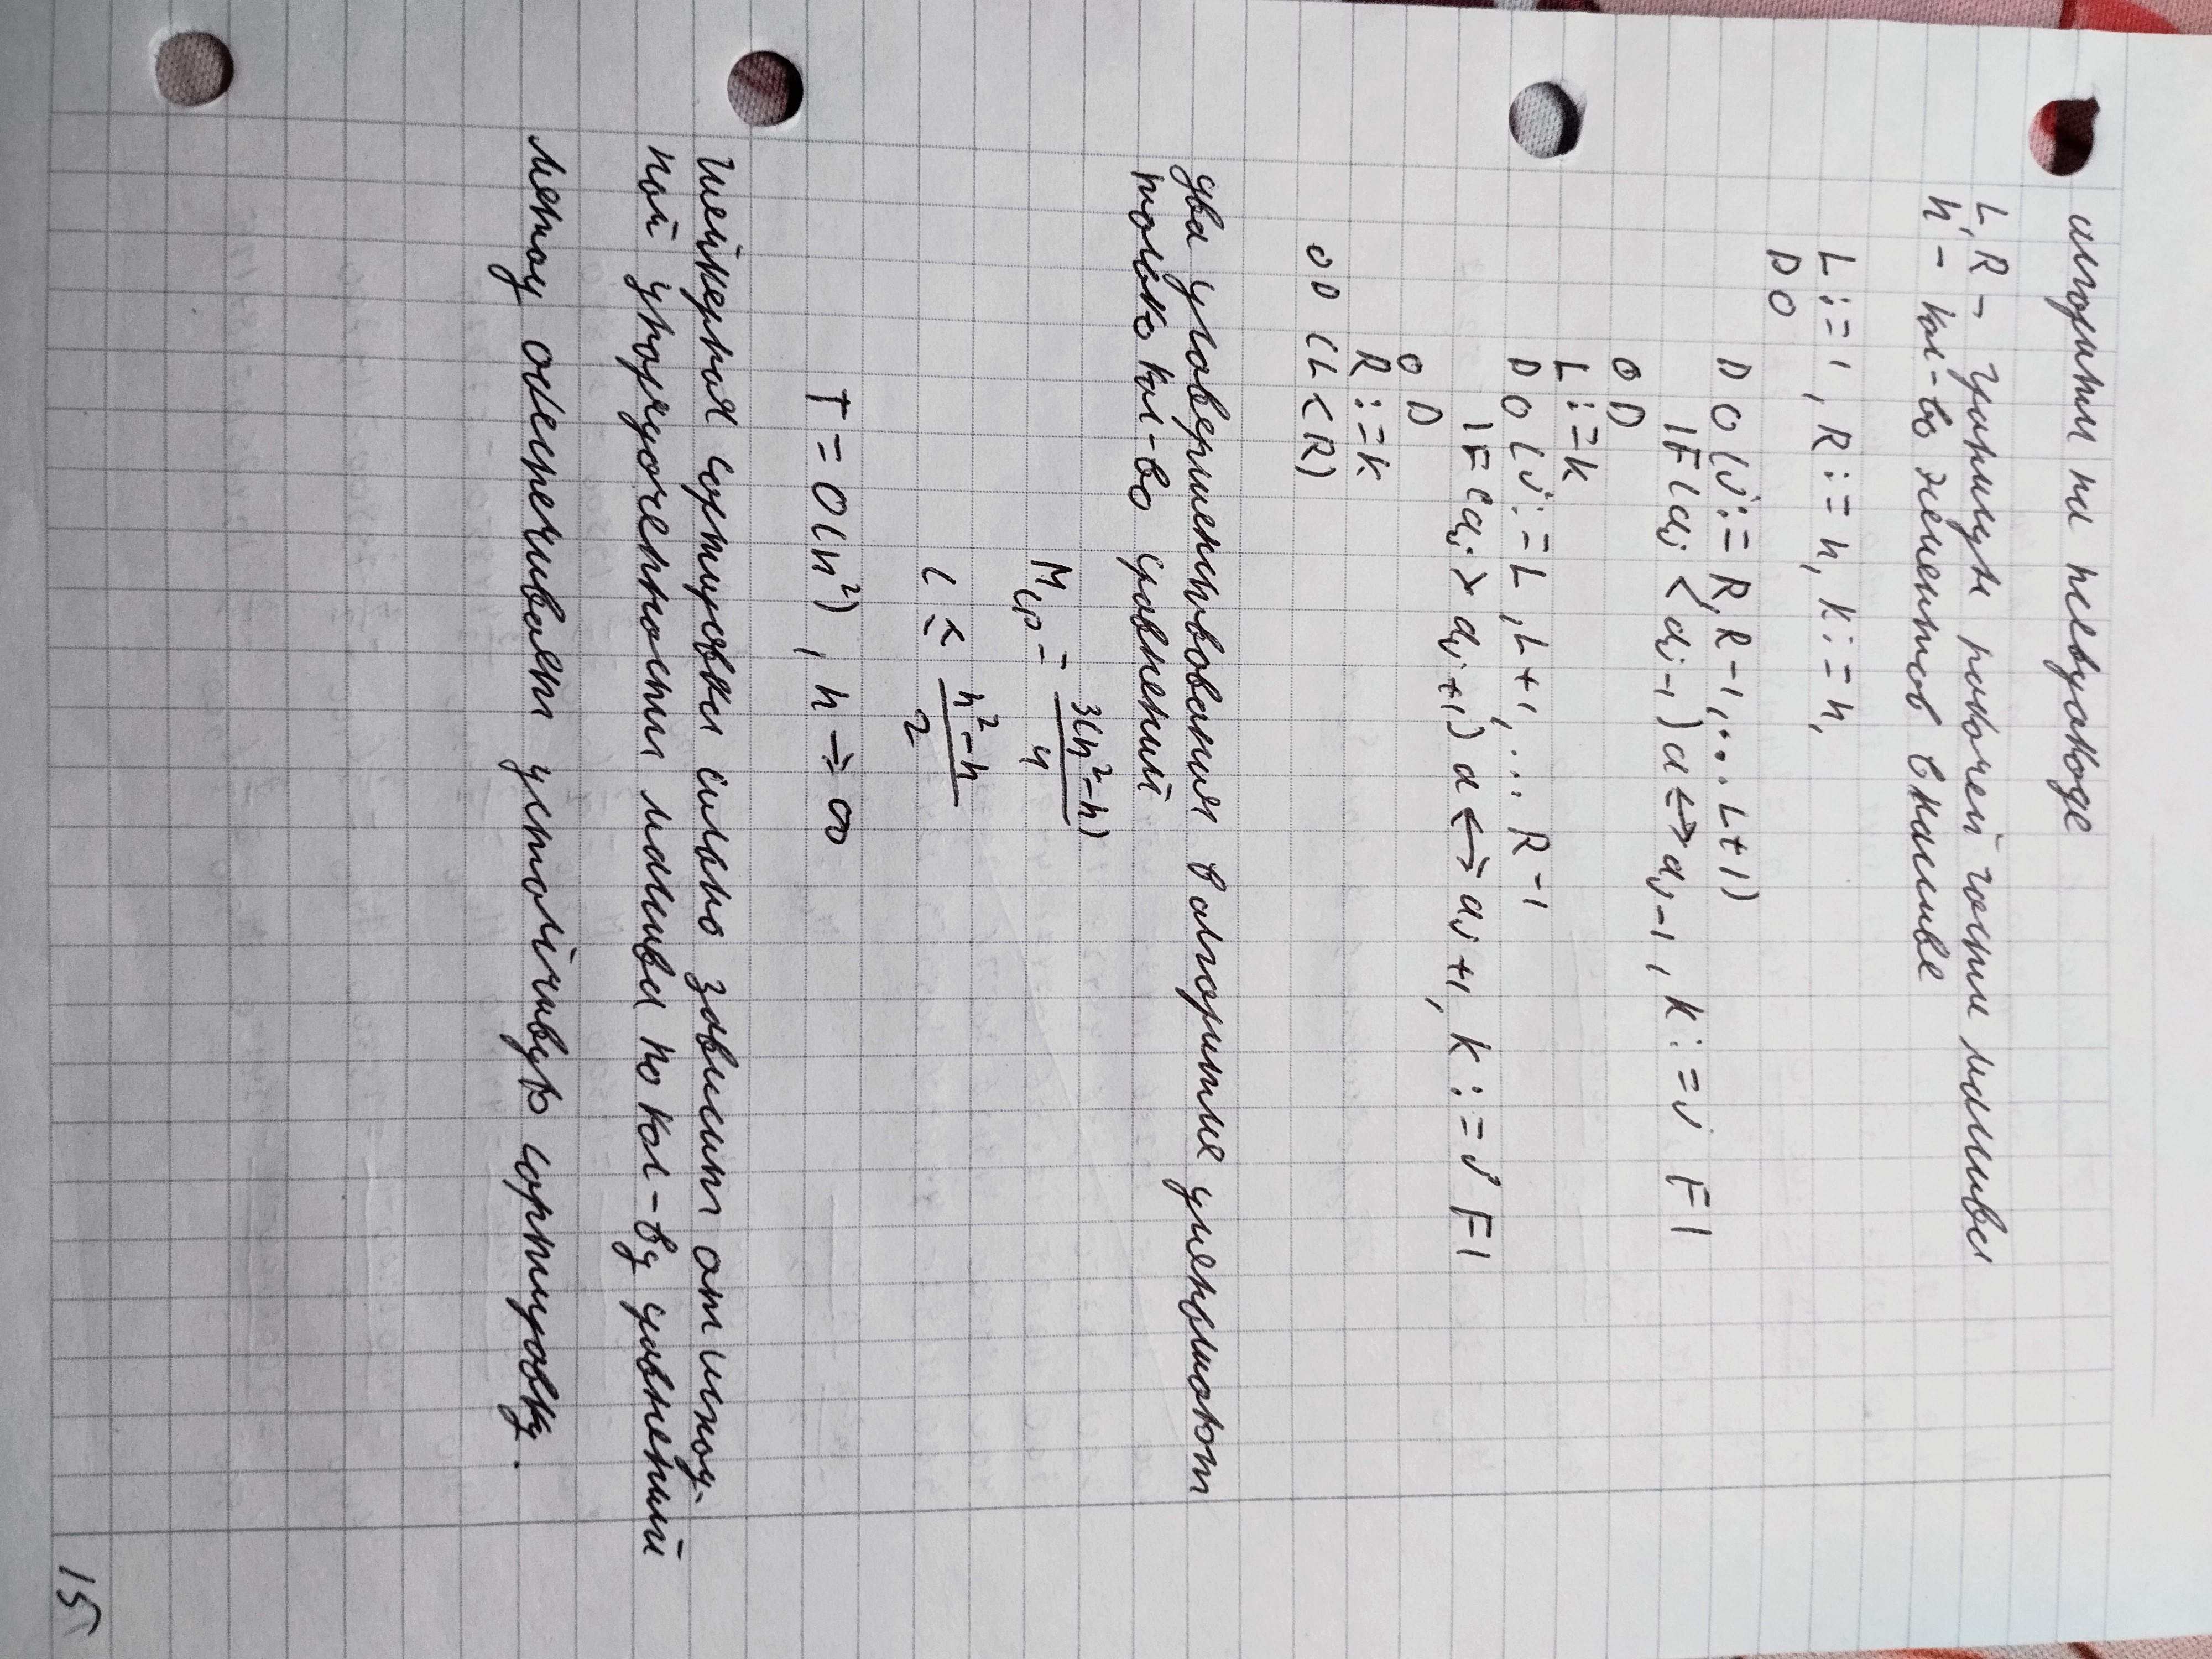 алгоритм на псевдокоде
L, R – границы рабочей части массива
n – кол-во элементов в массиве
L := 1, R := n, K := n,
DO
DO (j := R, R-1, ... L+1)
IF (aj < aj-1) a ↔ aj-1, K := j FI
OD
L := K
DO (j := L, L+1, ... R-1
IF (aj > aj+1) a ↔ aj+1, K := j FI
OD
R := K
OD (L < R)
два усовершенствования в алгоритме уменьшают
только кол-во сравнений
Mср = 3(n²-n)/4
C ≤ (n²-n)/2
T = O(n²), n → ∞
шейкерная сортировка сильно зависит от исход-
ной упорядоченности массива по кол-ву сравнений
метод обеспечивает устойчивую сортировку.
15